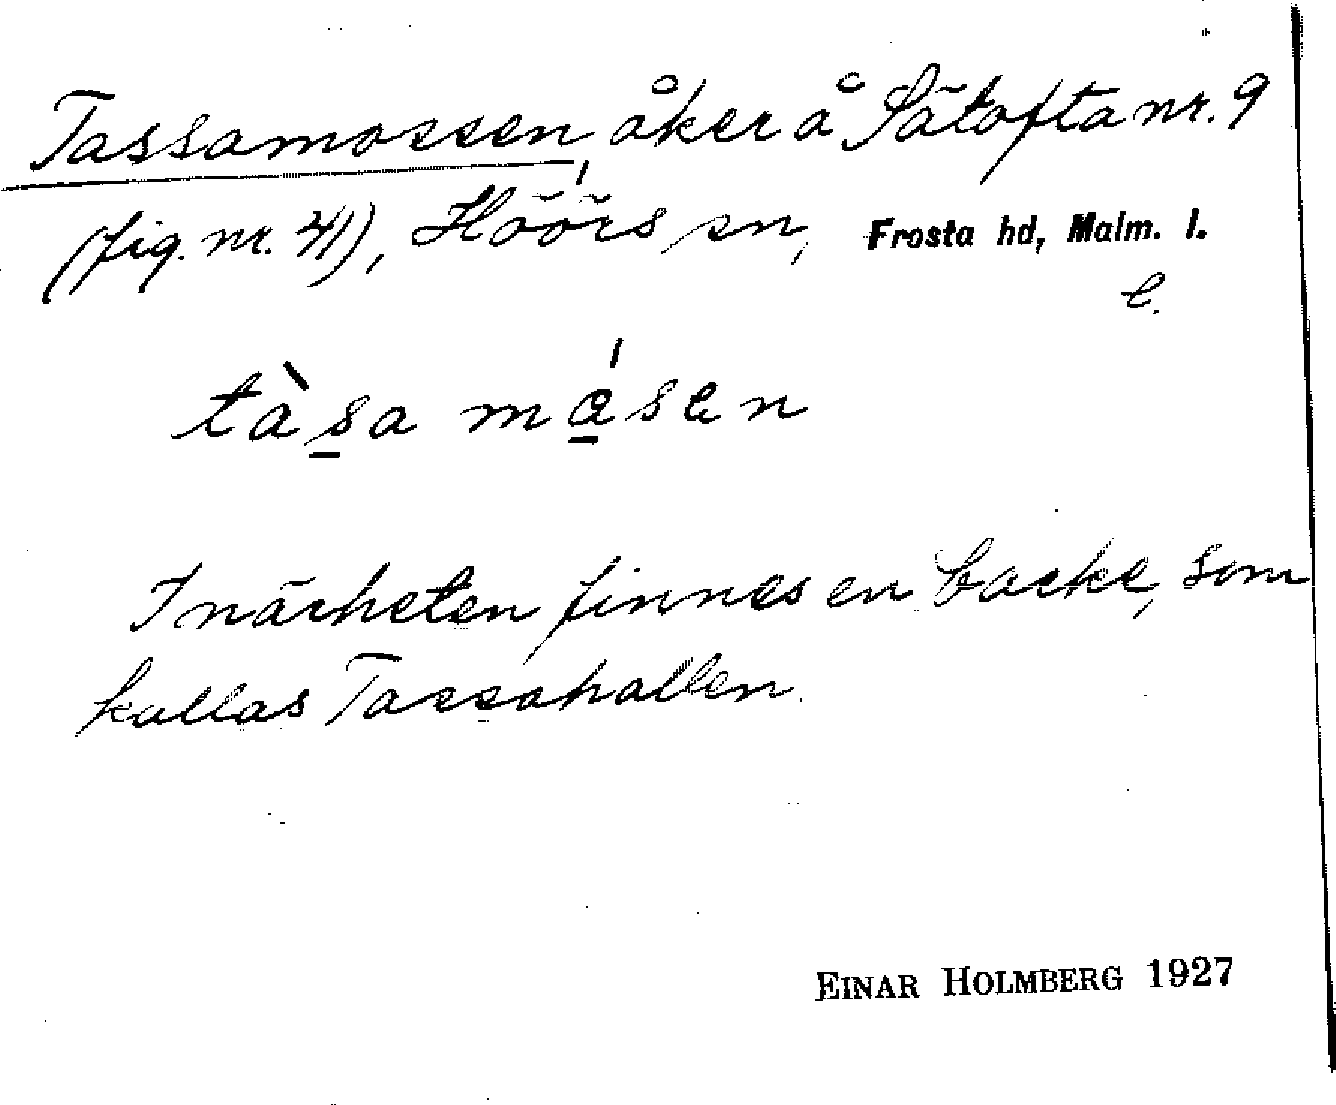 Tassamossen, åker å Sätofta nr. 9
(fig. nr. 41), Höörs sn, Frosta hd, Malm. l.
l.
tàsa måsen
I närheten finnes en backe, som
kallas Tassahallen.
EINAR HOLMBERG 1927